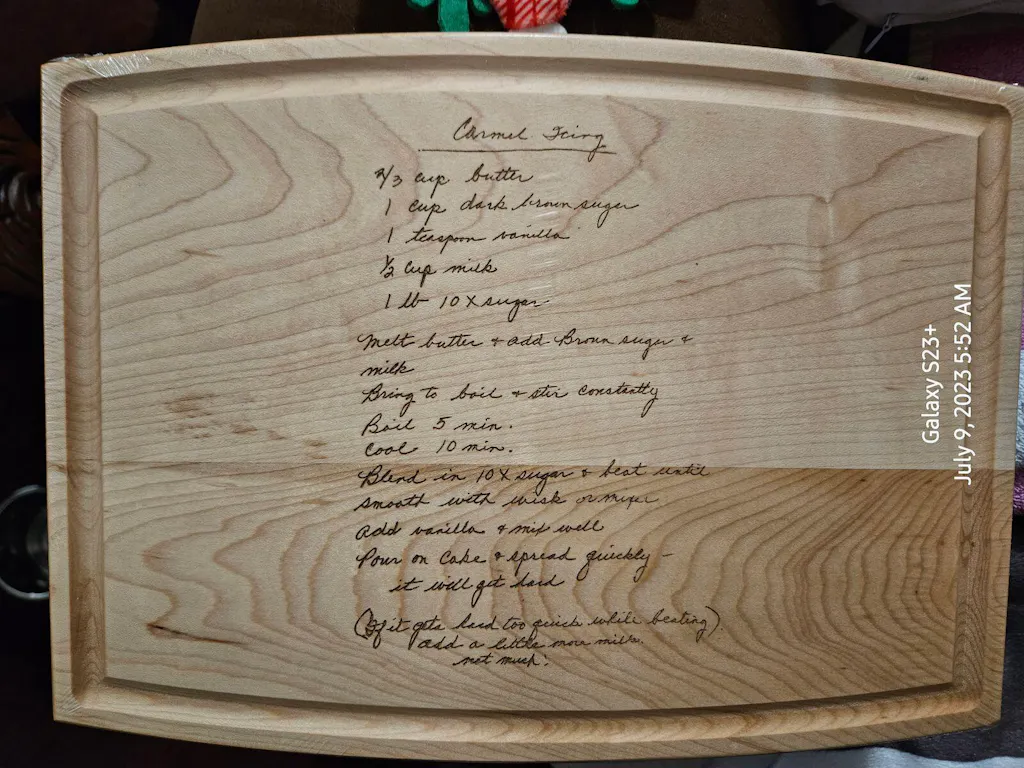 Carmel Icing
2/3 cup butter
1 cup dark brown sugar
1 teaspoon vanilla
1/2 cup milk
1 lb 10X sugar
Melt butter + add Brown sugar +
milk
Bring to boil + stir constantly
Boil 5 min.
Cool 10 min.
Blend in 10X sugar + beat until
smooth with wisk or mixer
add vanilla + mix well
Pour on Cake + spread quickly -
it will get hard
(If it gets hard too quick while beating)
add a little more milk.
not much.
Galaxy S23+
July 9, 2023 5:52 AM